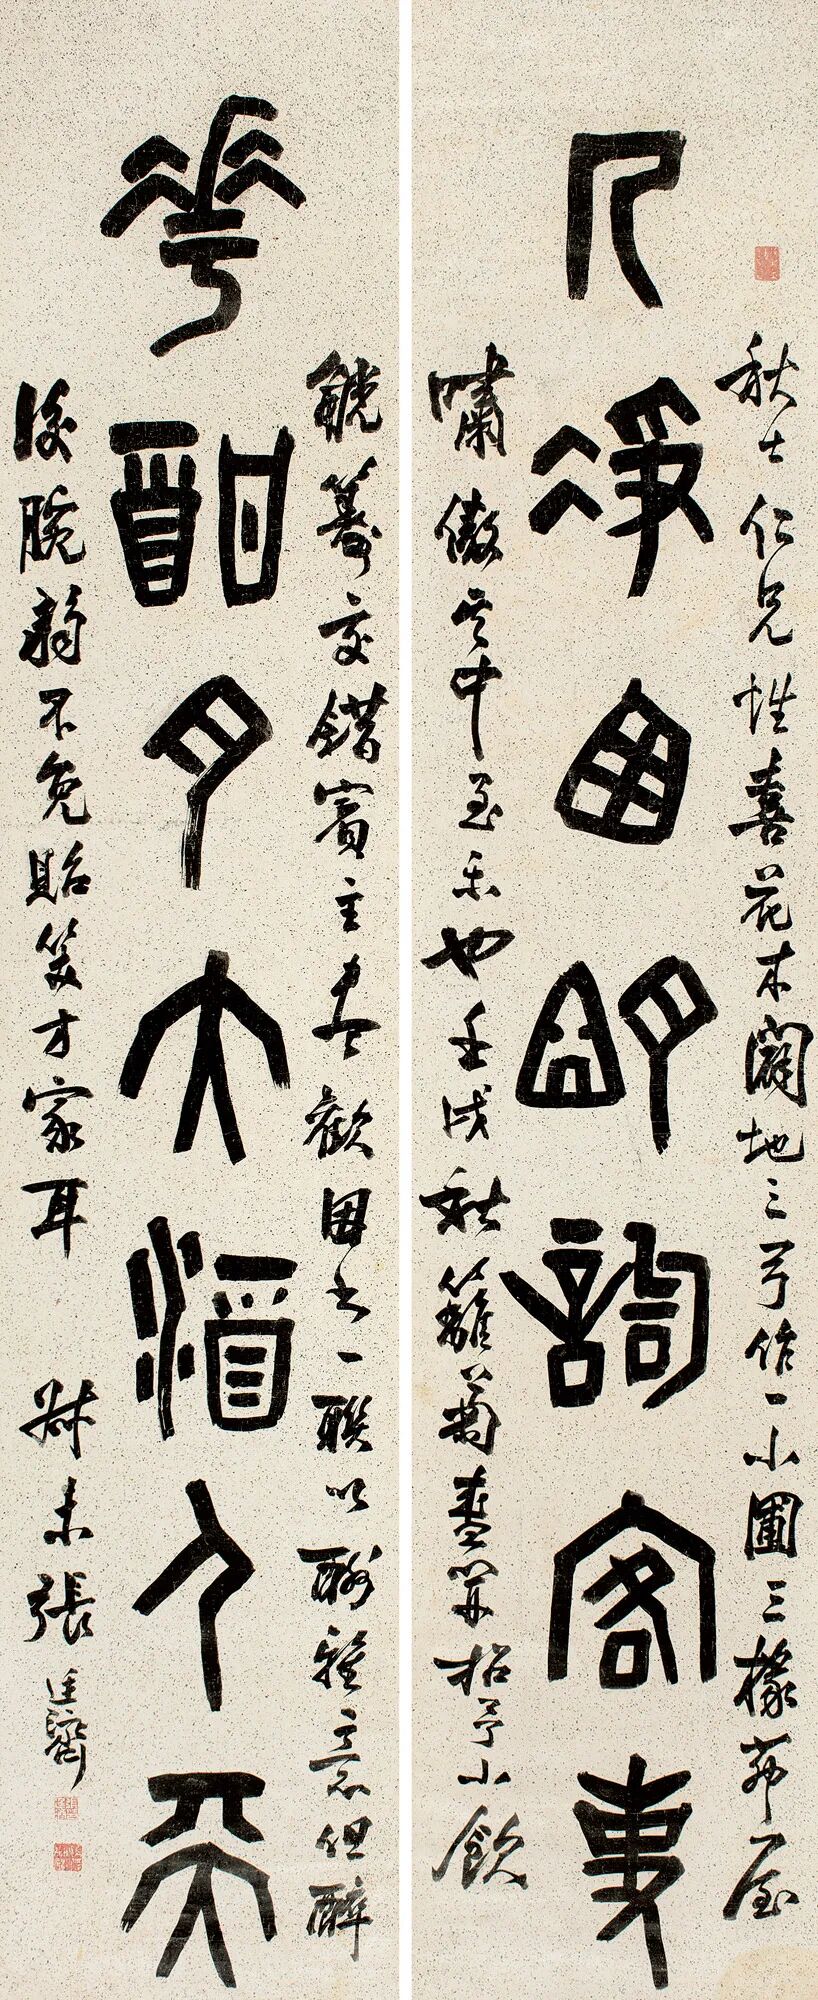 秋士仁兄性喜花木闢地三弓作一小圃三椽茅屋
几淨囱明詞客事
嘯傲其中至樂也壬戌秋籬菊盛開招予小飲
觥籌交錯賓主盡歡因書一聯以酬雅意但醉
華酣月大酒人天
後腕弱不免貽笑方家耳 叔未張廷濟